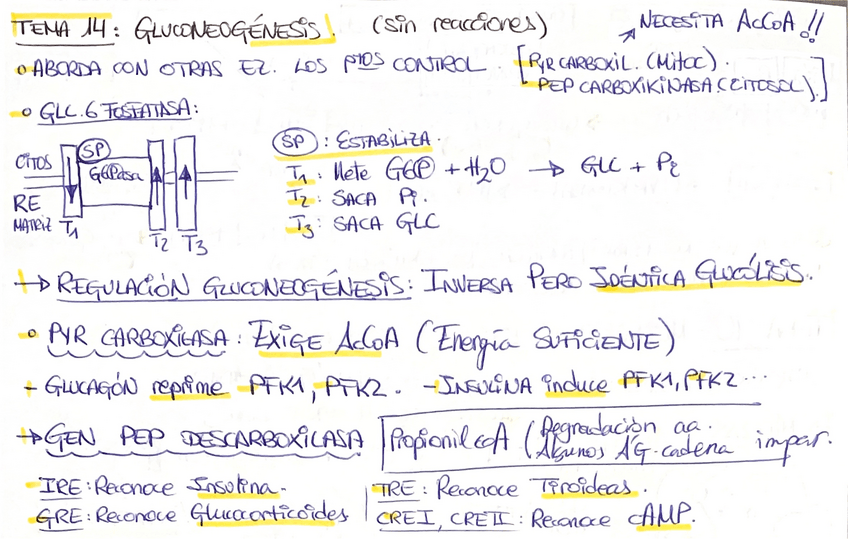 TEMA 14: GLUCONEOGÉNESIS. (sin reacciones)
NECESITA AcCoA!!
o ABORDA CON OTRAS EZ. LOS PTOS CONTROL.
[PYR CARBOXIL. (MITOC).
PEP CARBOXIKINASA (CITOSOL).]
o GLC. 6 FOSFATASA:
CITOS
SP
G6Pasa
RE
MATRIZ
T1
T2
T3
SP: ESTABILIZA.
T1: Mete G6P + H2O → GLC + Pi
T2: SACA Pi.
T3: SACA GLC
→ REGULACIÓN GLUCONEOGÉNESIS: INVERSA PERO IDÉNTICA GLUCÓLISIS.
o PYR CARBOXILASA: EXIGE AcCoA (Energía SUFICIENTE)
- GLUCAGÓN reprime PFK1, PFK2. - INSULINA induce PFK1, PFK2...
→ GEN PEP DESCARBOXILASA
PropionilcoA (Degradación aa.
Algunos AG. cadena impar.
- IRE: Reconoce Insulina.
GRE: Reconoce Glucocorticoides
TRE: Reconoce Tiroideas.
CREI, CREII: Reconoce cAMP.